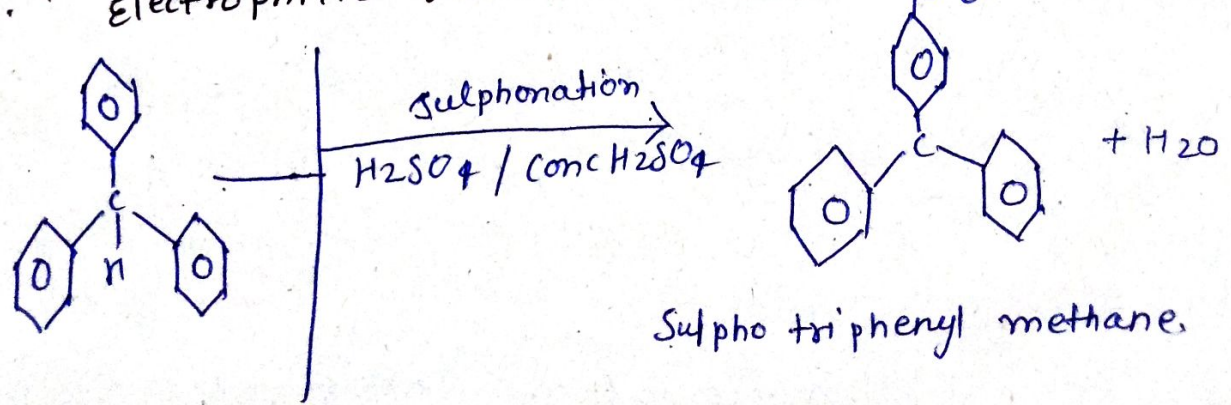 sulphonation
H2SO4 / conc H2SO4
C
C
H
+ H2O
Sulpho triphenyl methane.